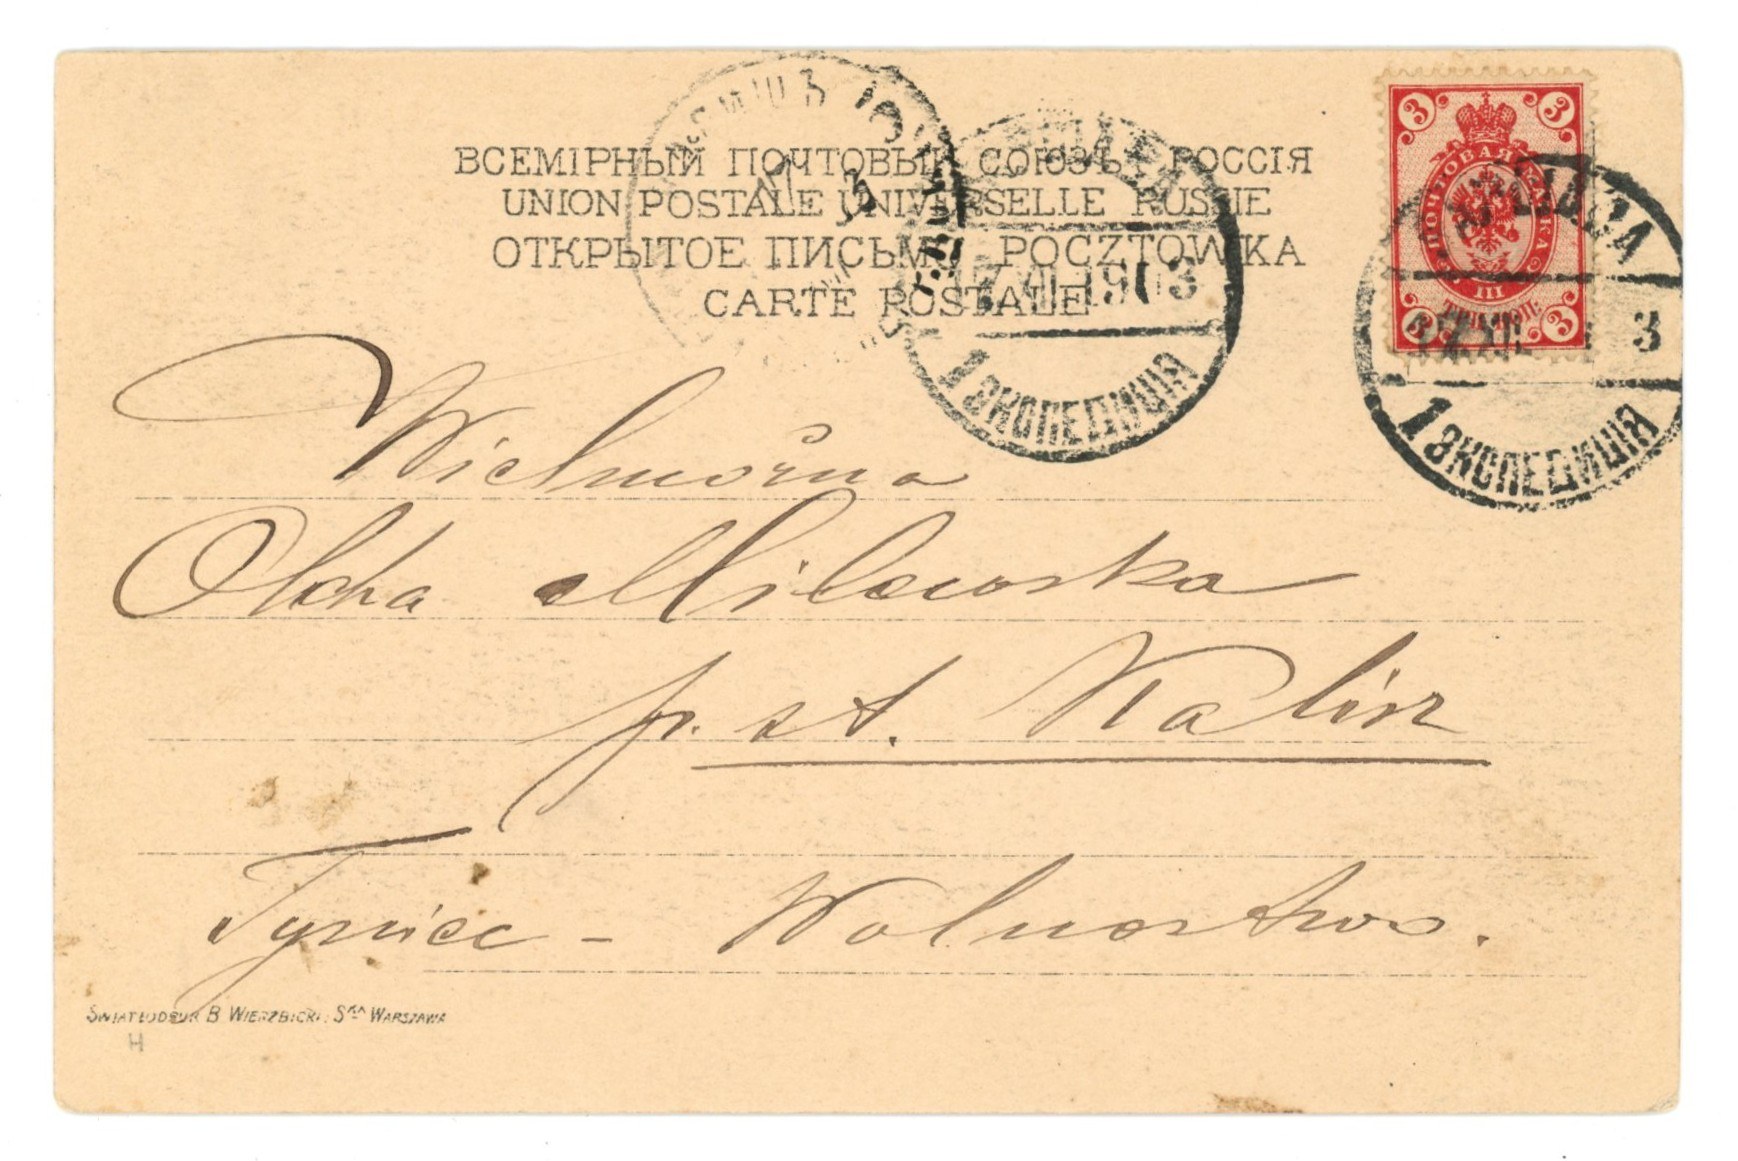 ВСЕМІРНЫЙ ПОЧТОВЫЙ СОЮЗЪ. РОССІЯ
UNION POSTALE UNIVERSELLE RUSSIE
ОТКРЫТОЕ ПИСЬМО. POCZTOWKA
CARTE POSTALE
3 3
ПОЧТОВАЯ МАРКА
III
3 3
1903
1 ЭКСПЕДИЦІЯ
3
1 ЭКСПЕДИЦІЯ
Wielmożna
Milewska
p. st. Kalisz
Tyniec –
ŚWIATŁODRUK B. WIERZBICKI i SKA WARSZAWA
H